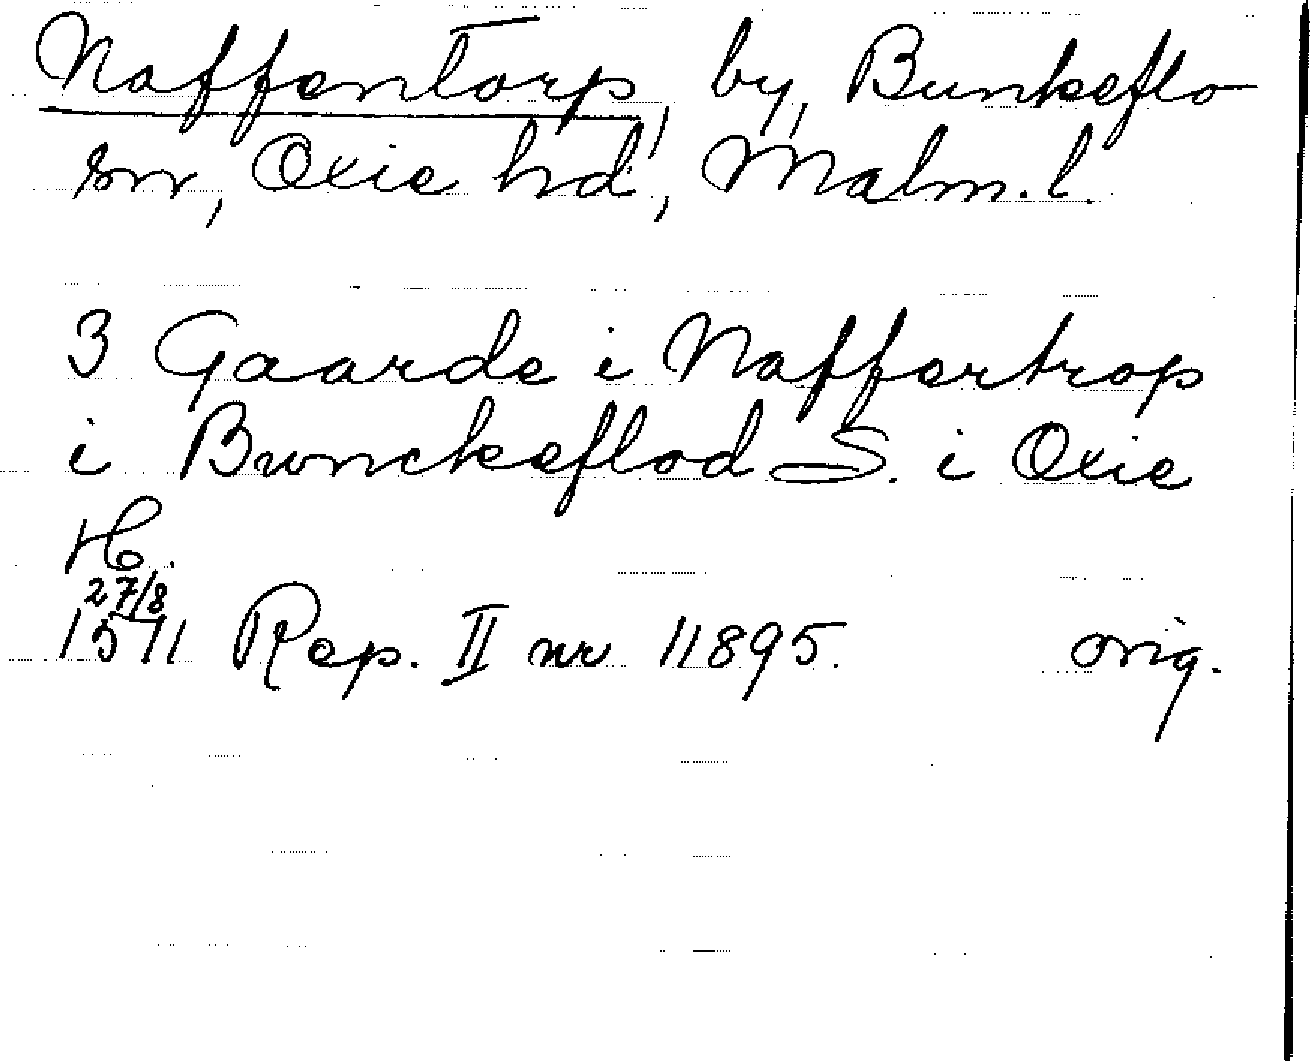 Naffentorp, by, Bunkeflo
sn, Oxie hd, Malm. l.
3 Gaarde i Naffertrop
i Bwnckeflod S. i Oxie
H.
27/8
1571 Rep. II nr 11895. orig.